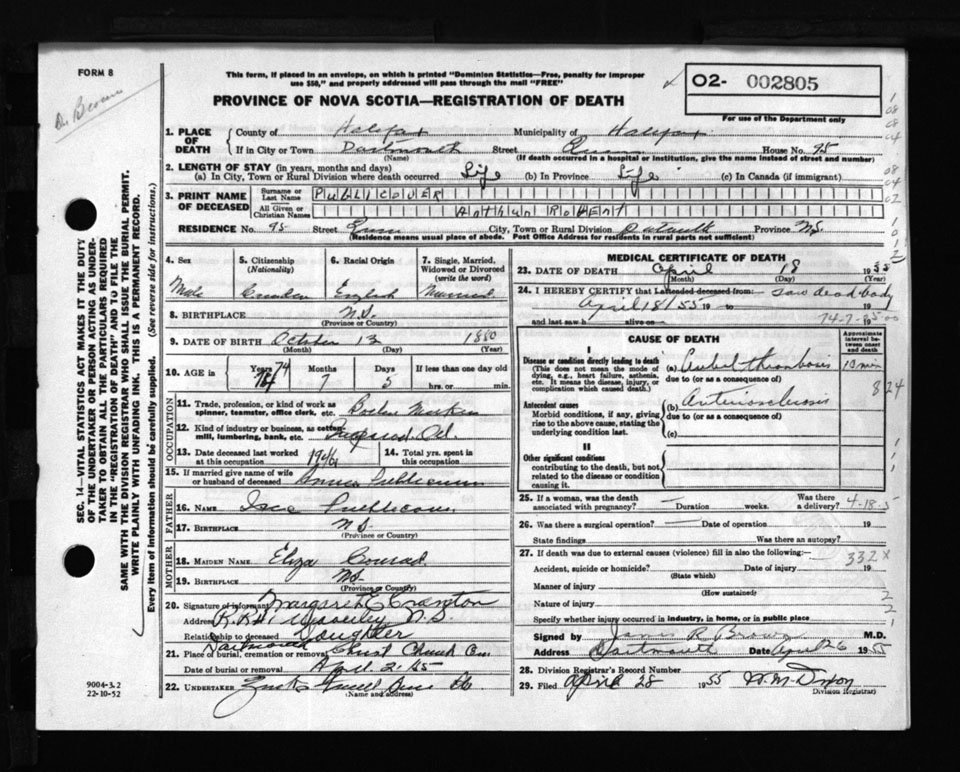 FORM 8
Dr Brown
This form, if placed in an envelope, on which is printed "Dominion Statistics—Free, penalty for improper
use $50," and properly addressed will pass through the mail "FREE"
PROVINCE OF NOVA SCOTIA—REGISTRATION OF DEATH
02- 002805
For use of the Department only
1. PLACE OF DEATH { County of Halifax Municipality of Halifax
If in City or Town Dartmouth Street House No. 95
(Name) (If death occurred in a hospital or institution, give the name instead of street and number)
2. LENGTH OF STAY (in years, months and days)
(a) In City, Town or Rural Division where death occurred Life (b) In Province Life (c) In Canada (if immigrant)
3. PRINT NAME OF DECEASED { Surname or Last Name PUBLICOVER
All Given or Christian Names Arthur Robert
RESIDENCE No. 95 Street City, Town or Rural Division Province N.S.
(Residence means usual place of abode. Post Office Address for residents in rural parts not sufficient)
4. Sex 5. Citizenship (Nationality) 6. Racial Origin 7. Single, Married, Widowed or Divorced (write the word)
Male Canadian English Married
8. BIRTHPLACE N.S.
(Province or Country)
9. DATE OF BIRTH October 13 1880
(Month) (Day) (Year)
10. AGE in Years Months Days If less than one day
74 7 5 hrs. or min.
OCCUPATION
11. Trade, profession, or kind of work as spinner, teamster, office clerk, etc.
12. Kind of industry or business, as cotton mill, lumbering, bank, etc.
13. Date deceased last worked at this occupation 14. Total yrs. spent in this occupation
15. If married give name of wife or husband of deceased
FATHER
16. Name
17. Birthplace N.S.
(Province or Country)
MOTHER
18. Maiden Name Eliza Conrad
19. Birthplace N.S.
(Province or Country)
20. Signature of informant Margaret E Cranton
Address Waverley N.S.
Relationship to deceased Daughter
Dartmouth
21. Place of burial, cremation or removal Christ Church Cem
Date of burial or removal April
22. Undertaker
(Name and address)
MEDICAL CERTIFICATE OF DEATH
23. DATE OF DEATH April 18 1955
(Month) (Day)
24. I HEREBY CERTIFY that I attended deceased from: saw dead body
April 18/55 19 to 19
and last saw h alive on
CAUSE OF DEATH
Approximate interval between onset and death
I
Disease or condition directly leading to death (This does not mean the mode of dying, e.g., heart failure, asthenia, etc. It means the disease, injury, or complication which caused death.)
(a) thrombosis 10 min
due to (or as a consequence of)
824
Antecedent causes
Morbid conditions, if any, giving rise to the above cause, stating the underlying condition last.
(b) Arteriosclerosis
due to (or as a consequence of)
(c)
II
Other significant conditions contributing to the death, but not related to the disease or condition causing it.
25. If a woman, was the death associated with pregnancy? — Duration weeks. Was there a delivery? 4-18-5
26. Was there a surgical operation? — Date of operation 19
State findings Was there an autopsy?
27. If death was due to external causes (violence) fill in also the following:— 332 X
Accident, suicide or homicide? Date of injury 19
(State which)
Manner of injury
(How sustained)
Nature of injury
Specify whether injury occurred in industry, in home, or in public place
Signed by James R Brown M.D.
Address Dartmouth Date April 26 1955
28. Division Registrar's Record Number
29. Filed April 28 1955
Division Registrar)
SEC. 14—VITAL STATISTICS ACT MAKES IT THE DUTY
OF THE UNDERTAKER OR PERSON ACTING AS UNDER-
TAKER TO OBTAIN ALL THE PARTICULARS REQUIRED
IN THE "REGISTRATION OF DEATH" AND TO FILE THE
SAME WITH THE DIVISION REGISTRAR WHO SHALL ISSUE THE BURIAL PERMIT.
WRITE PLAINLY WITH UNFADING INK. THIS IS A PERMANENT RECORD.
Every item of information should be carefully supplied. (See reverse side for instructions.)
9004-3.2
22-10-52